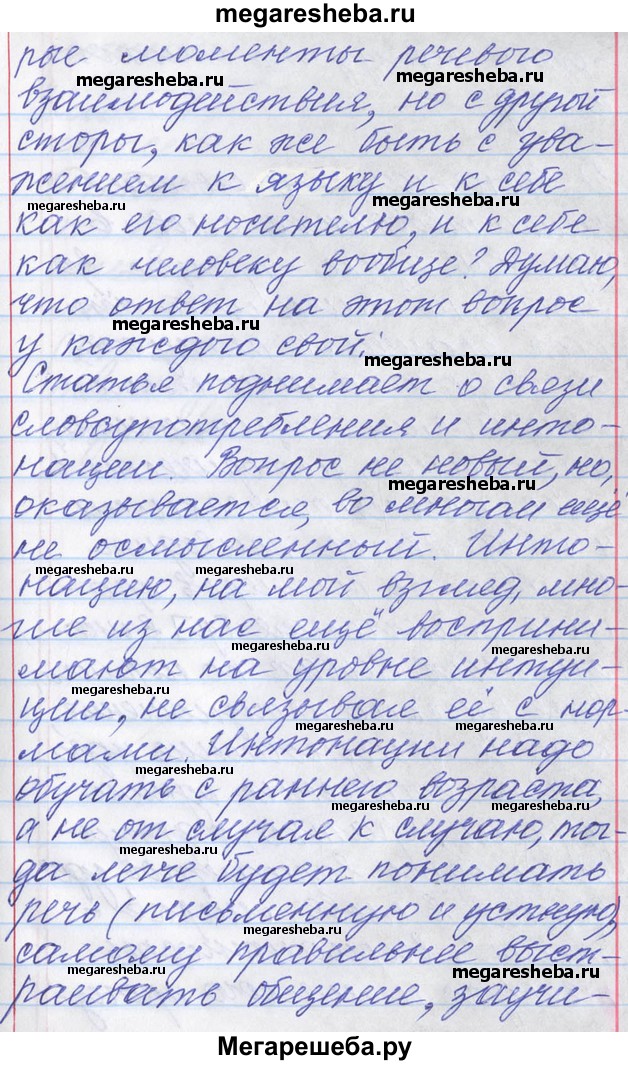 megaresheba.ru
рые моменты речевого
megaresheba.ru megaresheba.ru
взаимодействия, но с другой
сторы, как же быть с ува-
жением к языку и к себе
megaresheba.ru megaresheba.ru
как его носителю, и к себе
как человеку вообще? Думаю,
что ответ на этот вопрос
megaresheba.ru
у каждого свой.
Статья поднимает о связи
словоупотребления и инто-
нации. Вопрос не новый, но,
megaresheba.ru
оказывается, во многом ещё
не осмысленный. Инто-
megaresheba.ru megaresheba.ru
нацию, на мой взгляд, мно-
гие из нас ещё восприни-
megaresheba.ru
мают на уровне интуи-
megaresheba.ru
ции, не связывая её с нор-
megaresheba.ru
мами. Интонации надо
megaresheba.ru
обучать с раннего возраста,
megaresheba.ru
а не от случая к случаю, то-
megaresheba.ru
да легче будет понимать
речь (письменную и устную),
megaresheba.ru
самому правильнее выст-
megaresheba.ru megaresheba.ru
раивать общение, заучи-
Мегарешеба.ру